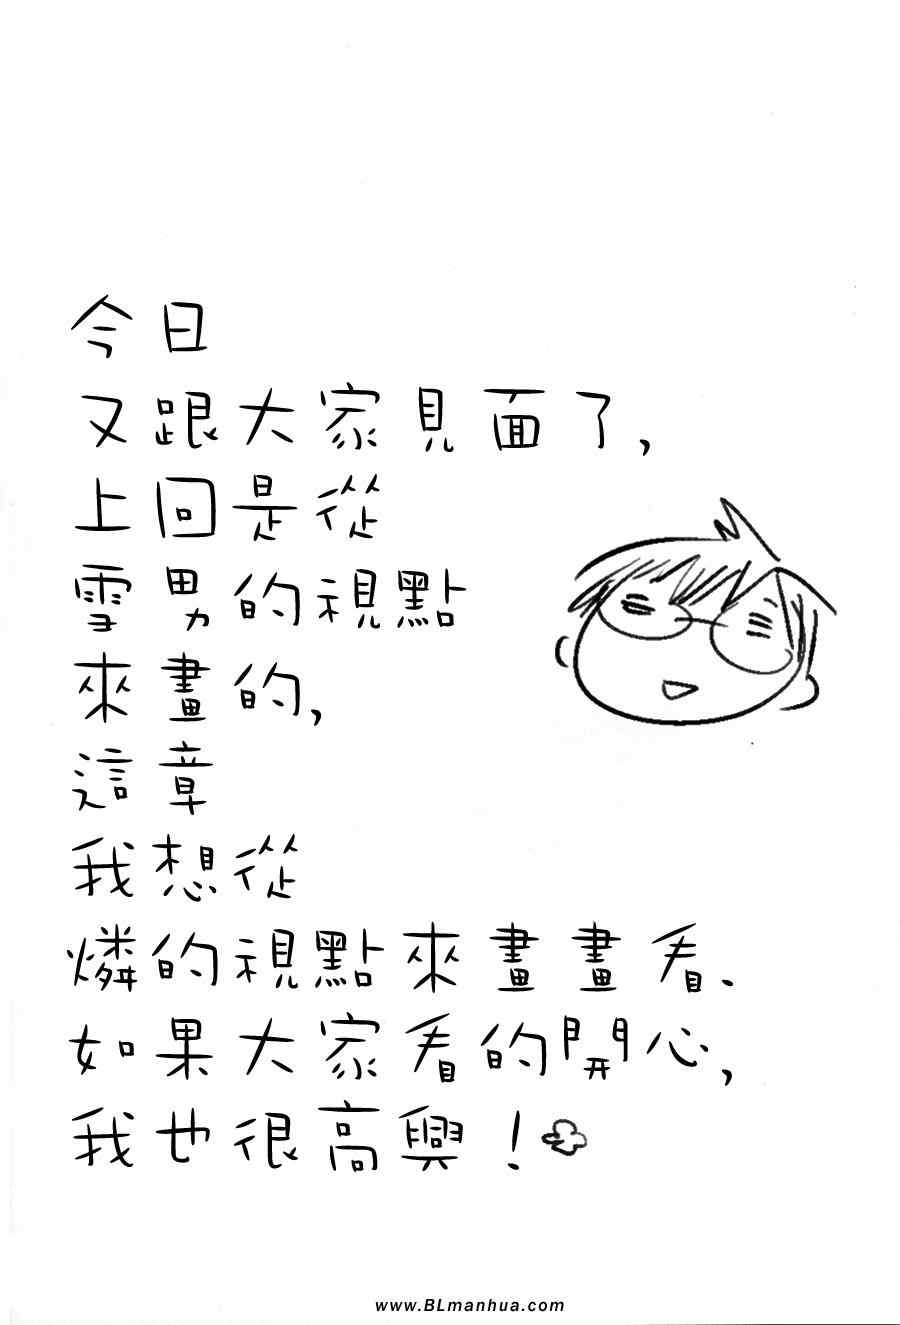 今日
又跟大家見面了,
上回是從
雪男的視點
來畫的,
這章
我想從
燐的視點來畫畫看.
如果大家看的開心,
我也很高興!
www.BLmanhua.com